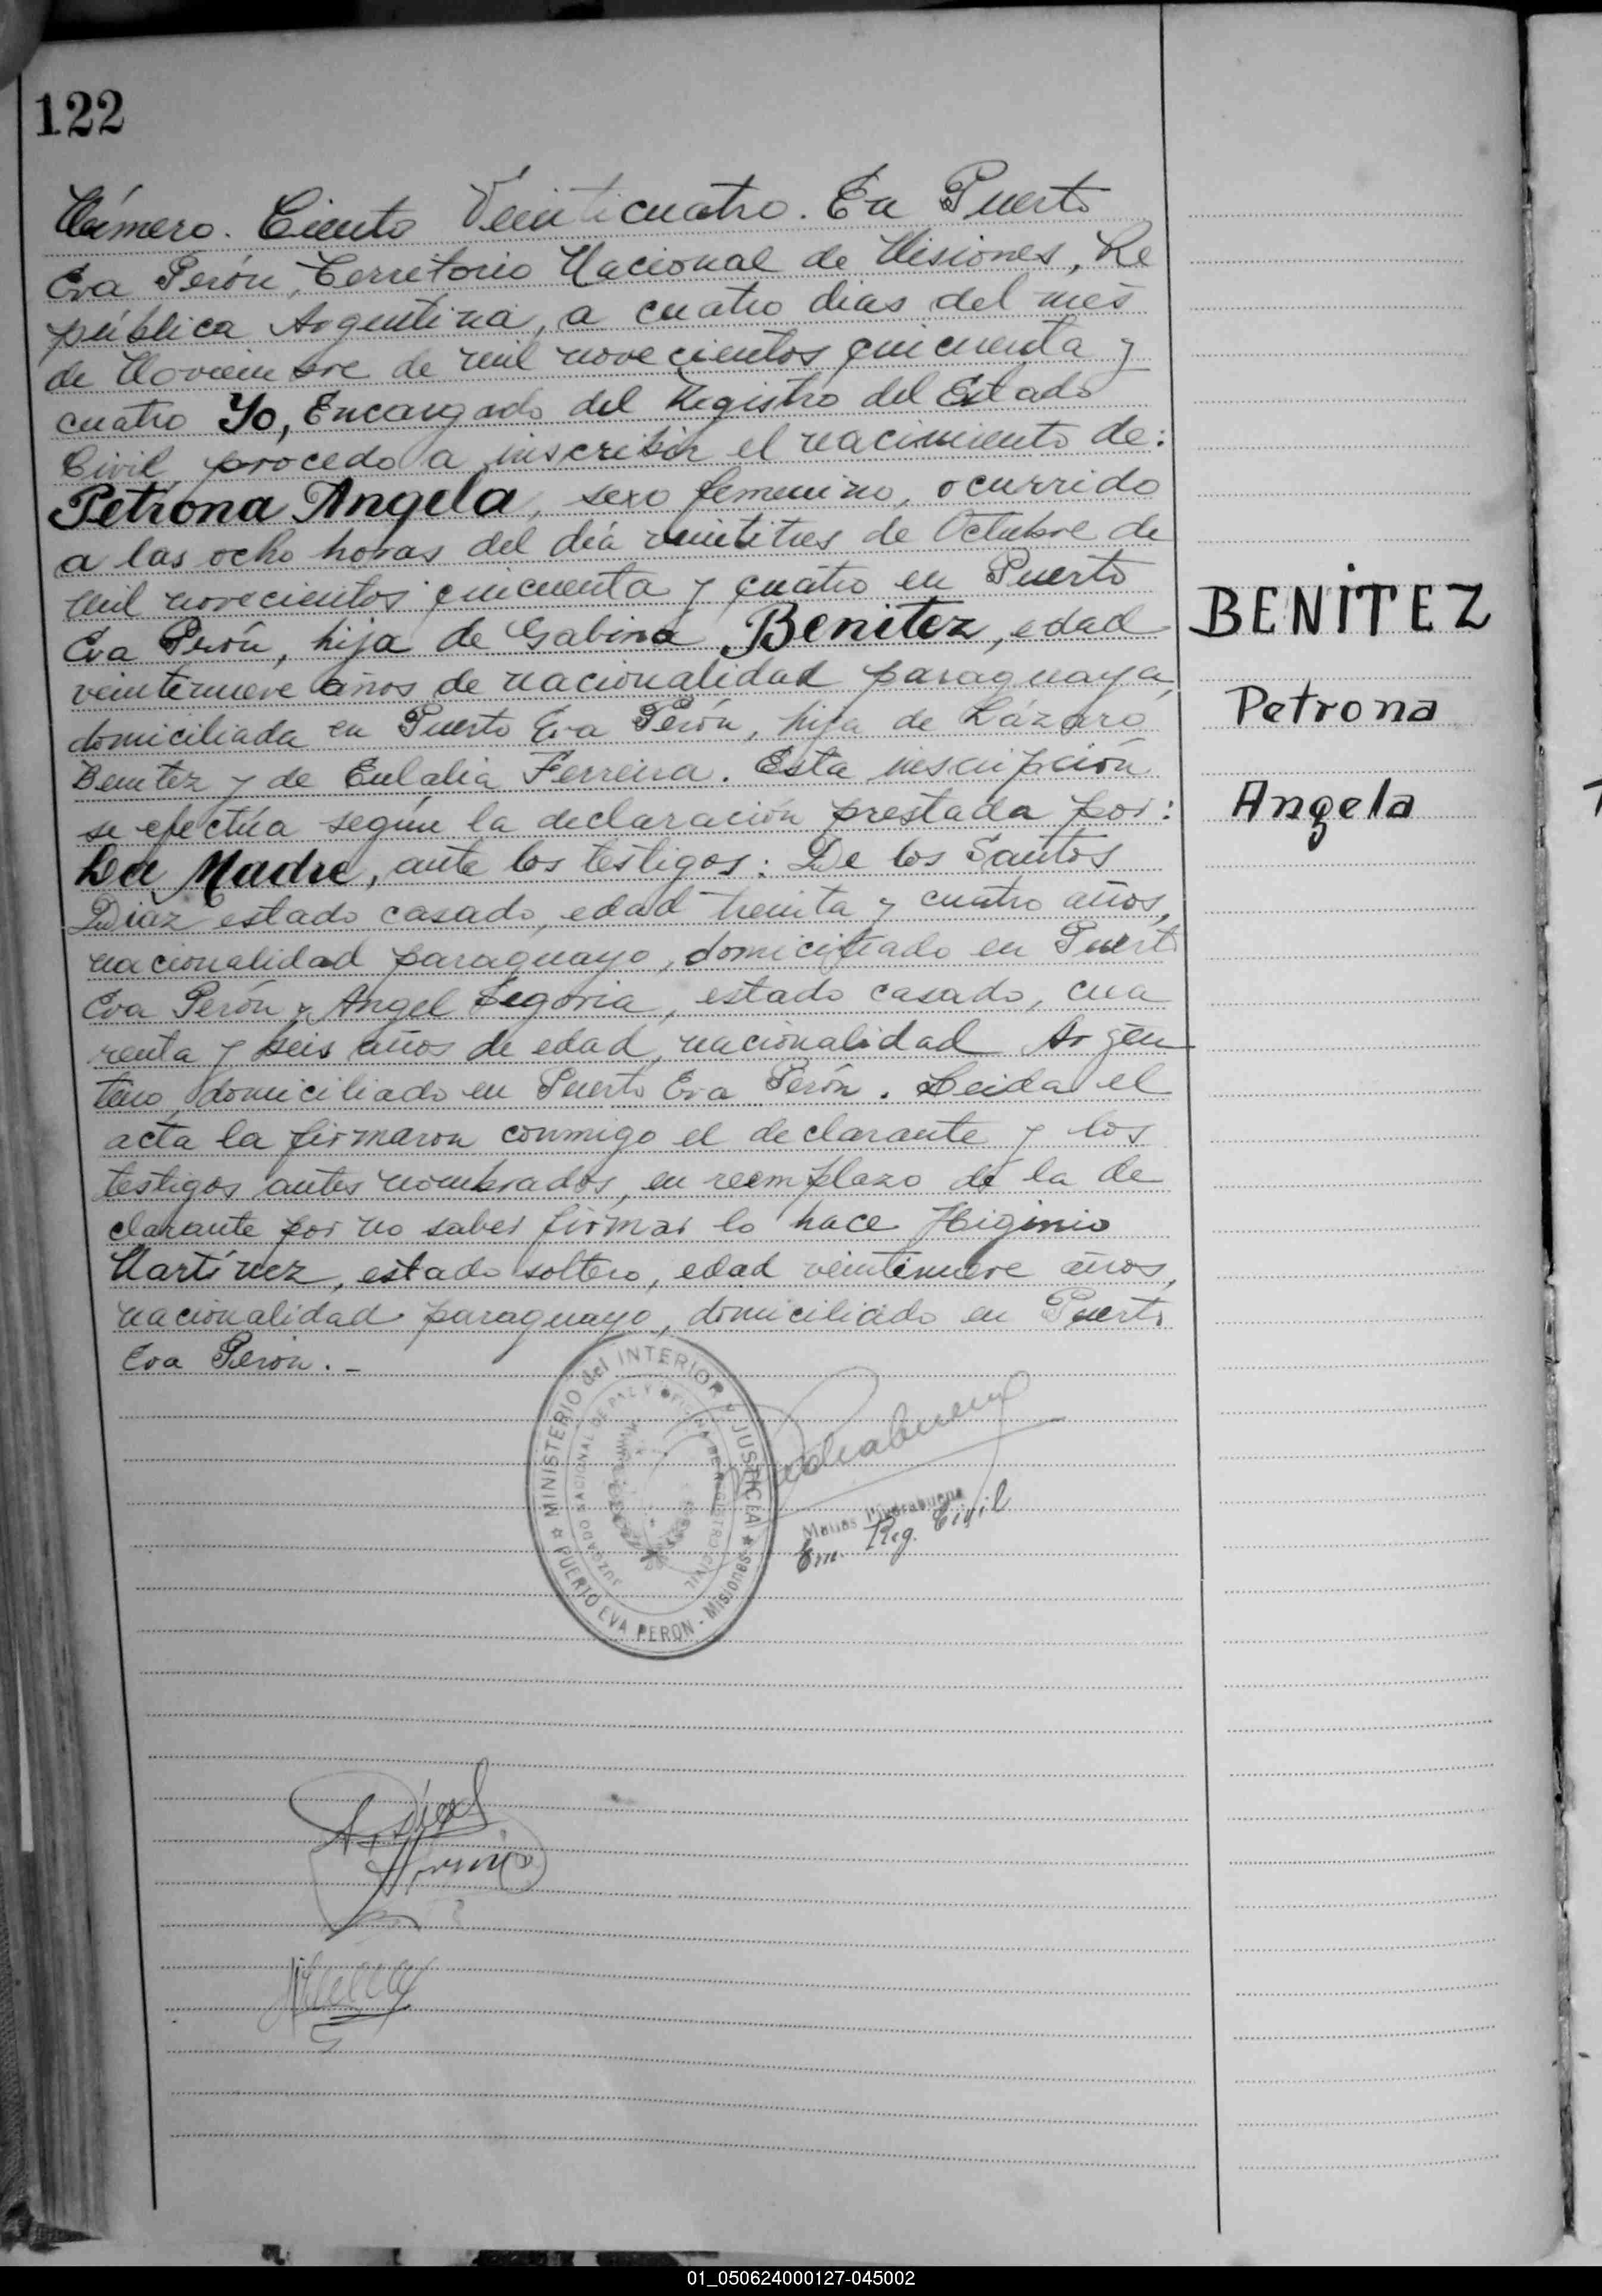 122
Número. Ciento Veinticuatro. En Puerto
Eva Perón, Territorio Nacional de Misiones, Re
pública Argentina, a cuatro dias del mes
de Noviembre de mil novecientos cincuenta y
cuatro Yo, Encargado del Registro del Estado
Civil, procedo a inscribir el nacimiento de:
Petrona Angela, sexo femenino, ocurrido
a las ocho horas del día veintitres de Octubre de
mil novecientos cincuenta y cuatro en Puerto
Eva Perón, hija de Gabina Benitez, edad
veintinueve años de nacionalidad paraguaya,
domiciliada en Puerto Eva Perón, hija de Lázaro
Benitez y de Eulalia Ferreira. Esta inscripción
se efectúa según la declaración prestada por:
La Madre, ante los testigos: De los Santos
Diaz estado casado, edad treinta y cuatro años,
nacionalidad paraguayo, domiciliado en Puerto
Eva Perón y Angel Segovia, estado casado, cua
renta y seis años de edad, nacionalidad Argen
tino, domiciliado en Puerto Eva Perón. Leida el
acta la firmaron conmigo el declarante y los
testigos antes nombrados, en reemplazo de la de
clarante por no saber firmar lo hace Higinio
Martínez, estado soltero, edad veintinueve años,
nacionalidad paraguayo, domiciliado en Puerto
Eva Perón. -
BENITEZ
Petrona
Angela
MINISTERIO del INTERIOR y JUSTICIA
JUZGADO NACIONAL DE PAZ Y OFICINA DE REGISTRO CIVIL
PUERTO EVA PERON - Misiones
Matias Piedrabuena
Enc. Reg. Civil
01_050624000127-045002